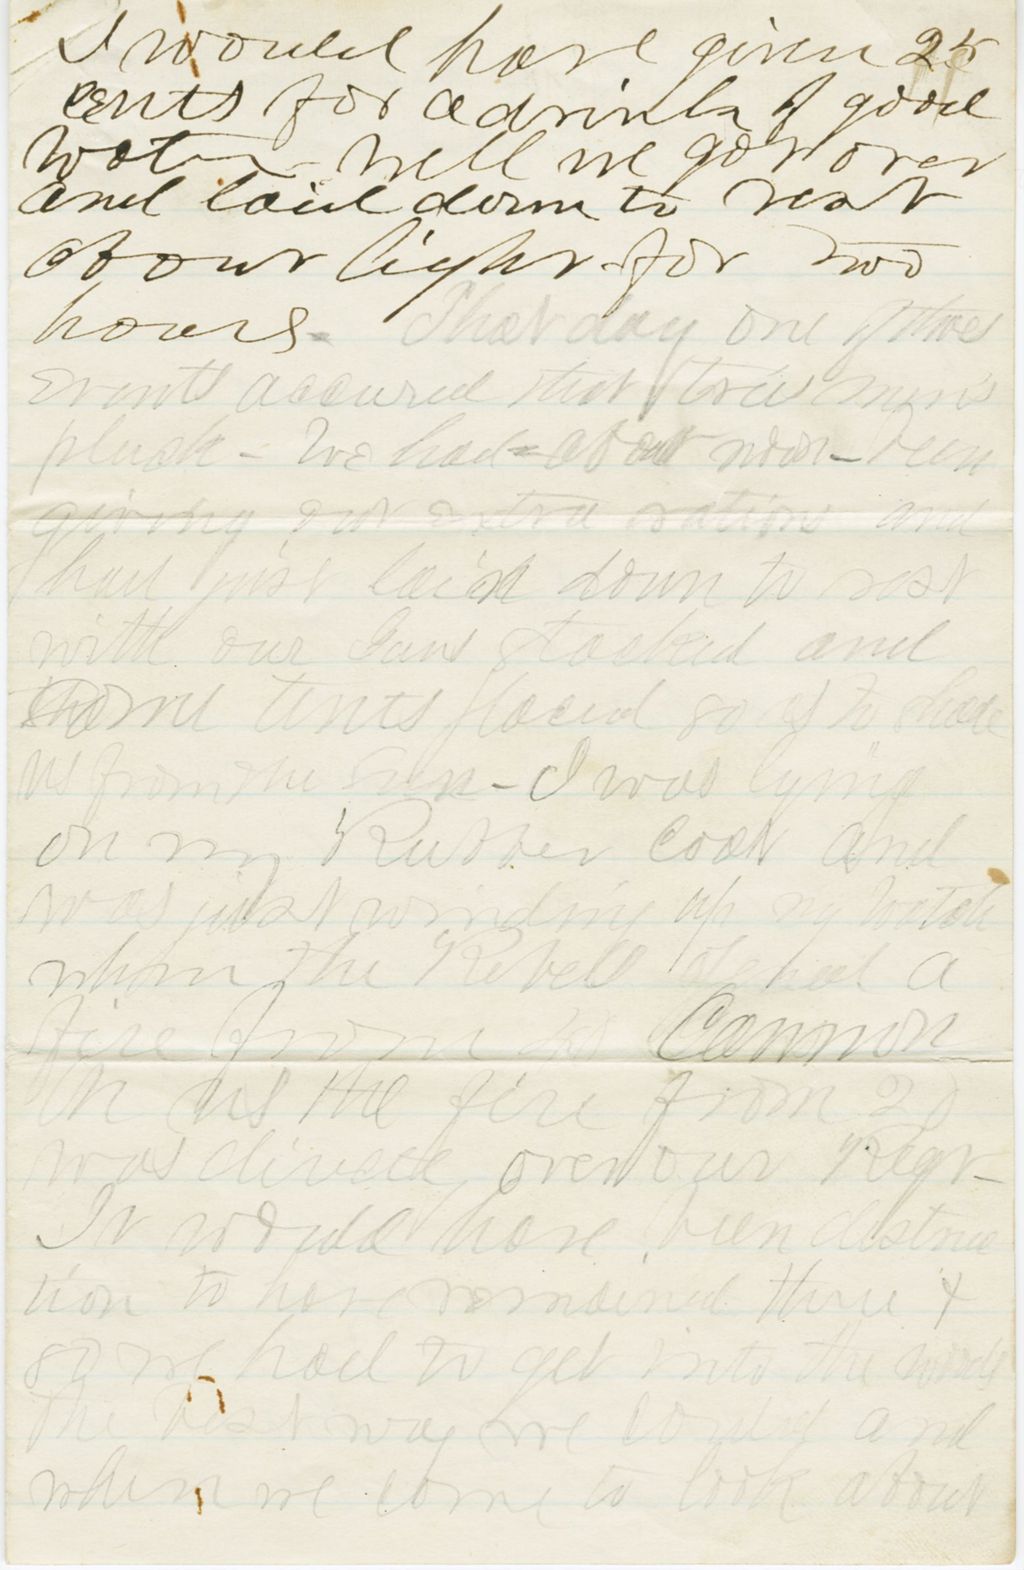 I would have given 25
cents for a drink of good
Water - well we got over
and laid down to rest
about light for two
hours. That day one of thoes
events accured that tries mens
pluck - We had about noon - been
giving out extra rations and
had just laid down to rest
with our Guns stacked and
some tents placed so as to shade
us from the Sun - I was lying
on my Rubber coat and
was just winding up my Watch
when the Rebels opened a
fire from 20 Cannon
on us the fire from 20
was direct over our Regt -
It would have been destruc
tion to have remained there &
so we had to get into the woods
the best way we could and
when we come to look about